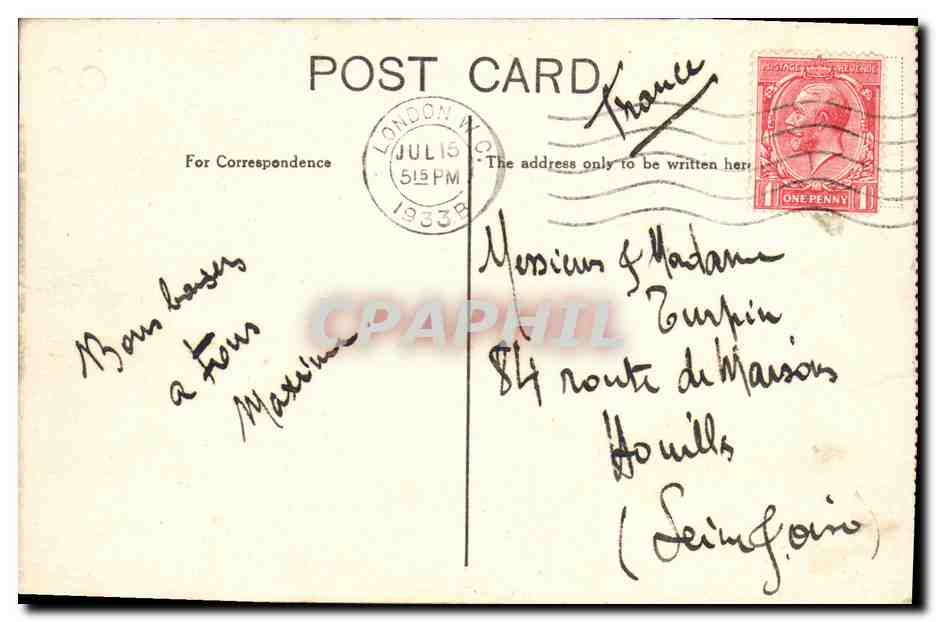 POST CARD
France
POSTAGE REVENUE
1 ONE PENNY 1D
LONDON W.C.
JUL 15
5 15 PM
1933 B
For Correspondence
The address only to be written here
Bons baisers
a tous
Maxime
Messieurs & Madame
Turpin
84 route de Maisons
Houilles
(Seine & oise)
CPAPHIL